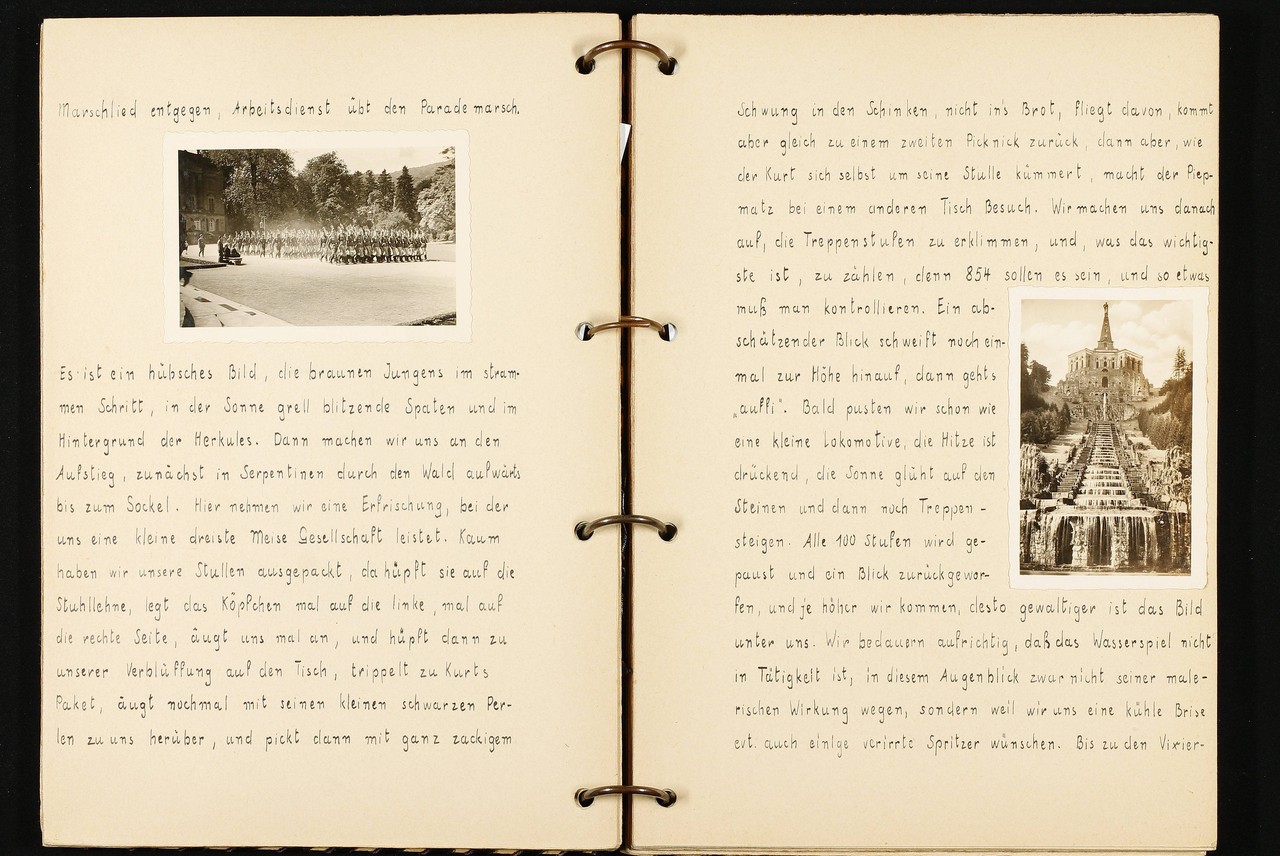 Marschlied entgegen, Arbeitsdienst übt den Parademarsch.
Es ist ein hübsches Bild, die braunen Jungens im stram-
men Schritt, in der Sonne grell blitzende Spaten und im
Hintergrund der Herkules. Dann machen wir uns an den
Aufstieg, zunächst in Serpentinen durch den Wald aufwärts
bis zum Sockel. Hier nehmen wir eine Erfrischung, bei der
uns eine kleine dreiste Meise Gesellschaft leistet. Kaum
haben wir unsere Stullen ausgepackt, da hüpft sie auf die
Stuhllehne, legt das Köpfchen mal auf die linke, mal auf
die rechte Seite, äugt uns mal an, und hüpft dann zu
unserer Verblüffung auf den Tisch, trippelt zu Kurts
Paket, äugt nochmal mit seinen kleinen schwarzen Per-
len zu uns herüber, und pickt dann mit ganz zackigem
Schwung in den Schinken, nicht in's Brot, fliegt davon, kommt
aber gleich zu einem zweiten Picknick zurück, dann aber, wie
der Kurt sich selbst um seine Stulle kümmert, macht der Piep-
matz bei einem anderen Tisch Besuch. Wir machen uns danach
auf, die Treppenstufen zu erklimmen, und, was das wichtig-
ste ist, zu zählen, denn 854 sollen es sein, und so etwas
muß man kontrollieren. Ein ab-
schätzender Blick schweift noch ein-
mal zur Höhe hinauf, dann gehts
„auffi". Bald pusten wir schon wie
eine kleine Lokomotive, die Hitze ist
drückend, die Sonne glüht auf den
Steinen und dann noch Treppen-
steigen. Alle 100 Stufen wird ge-
paust und ein Blick zurückgewor-
fen, und je höher wir kommen, desto gewaltiger ist das Bild
unter uns. Wir bedauern aufrichtig, daß das Wasserspiel nicht
in Tätigkeit ist, in diesem Augenblick zwar nicht seiner male-
rischen Wirkung wegen, sondern weil wir uns eine kühle Brise
evt. auch einige verirrte Spritzer wünschen. Bis zu den Vixier-